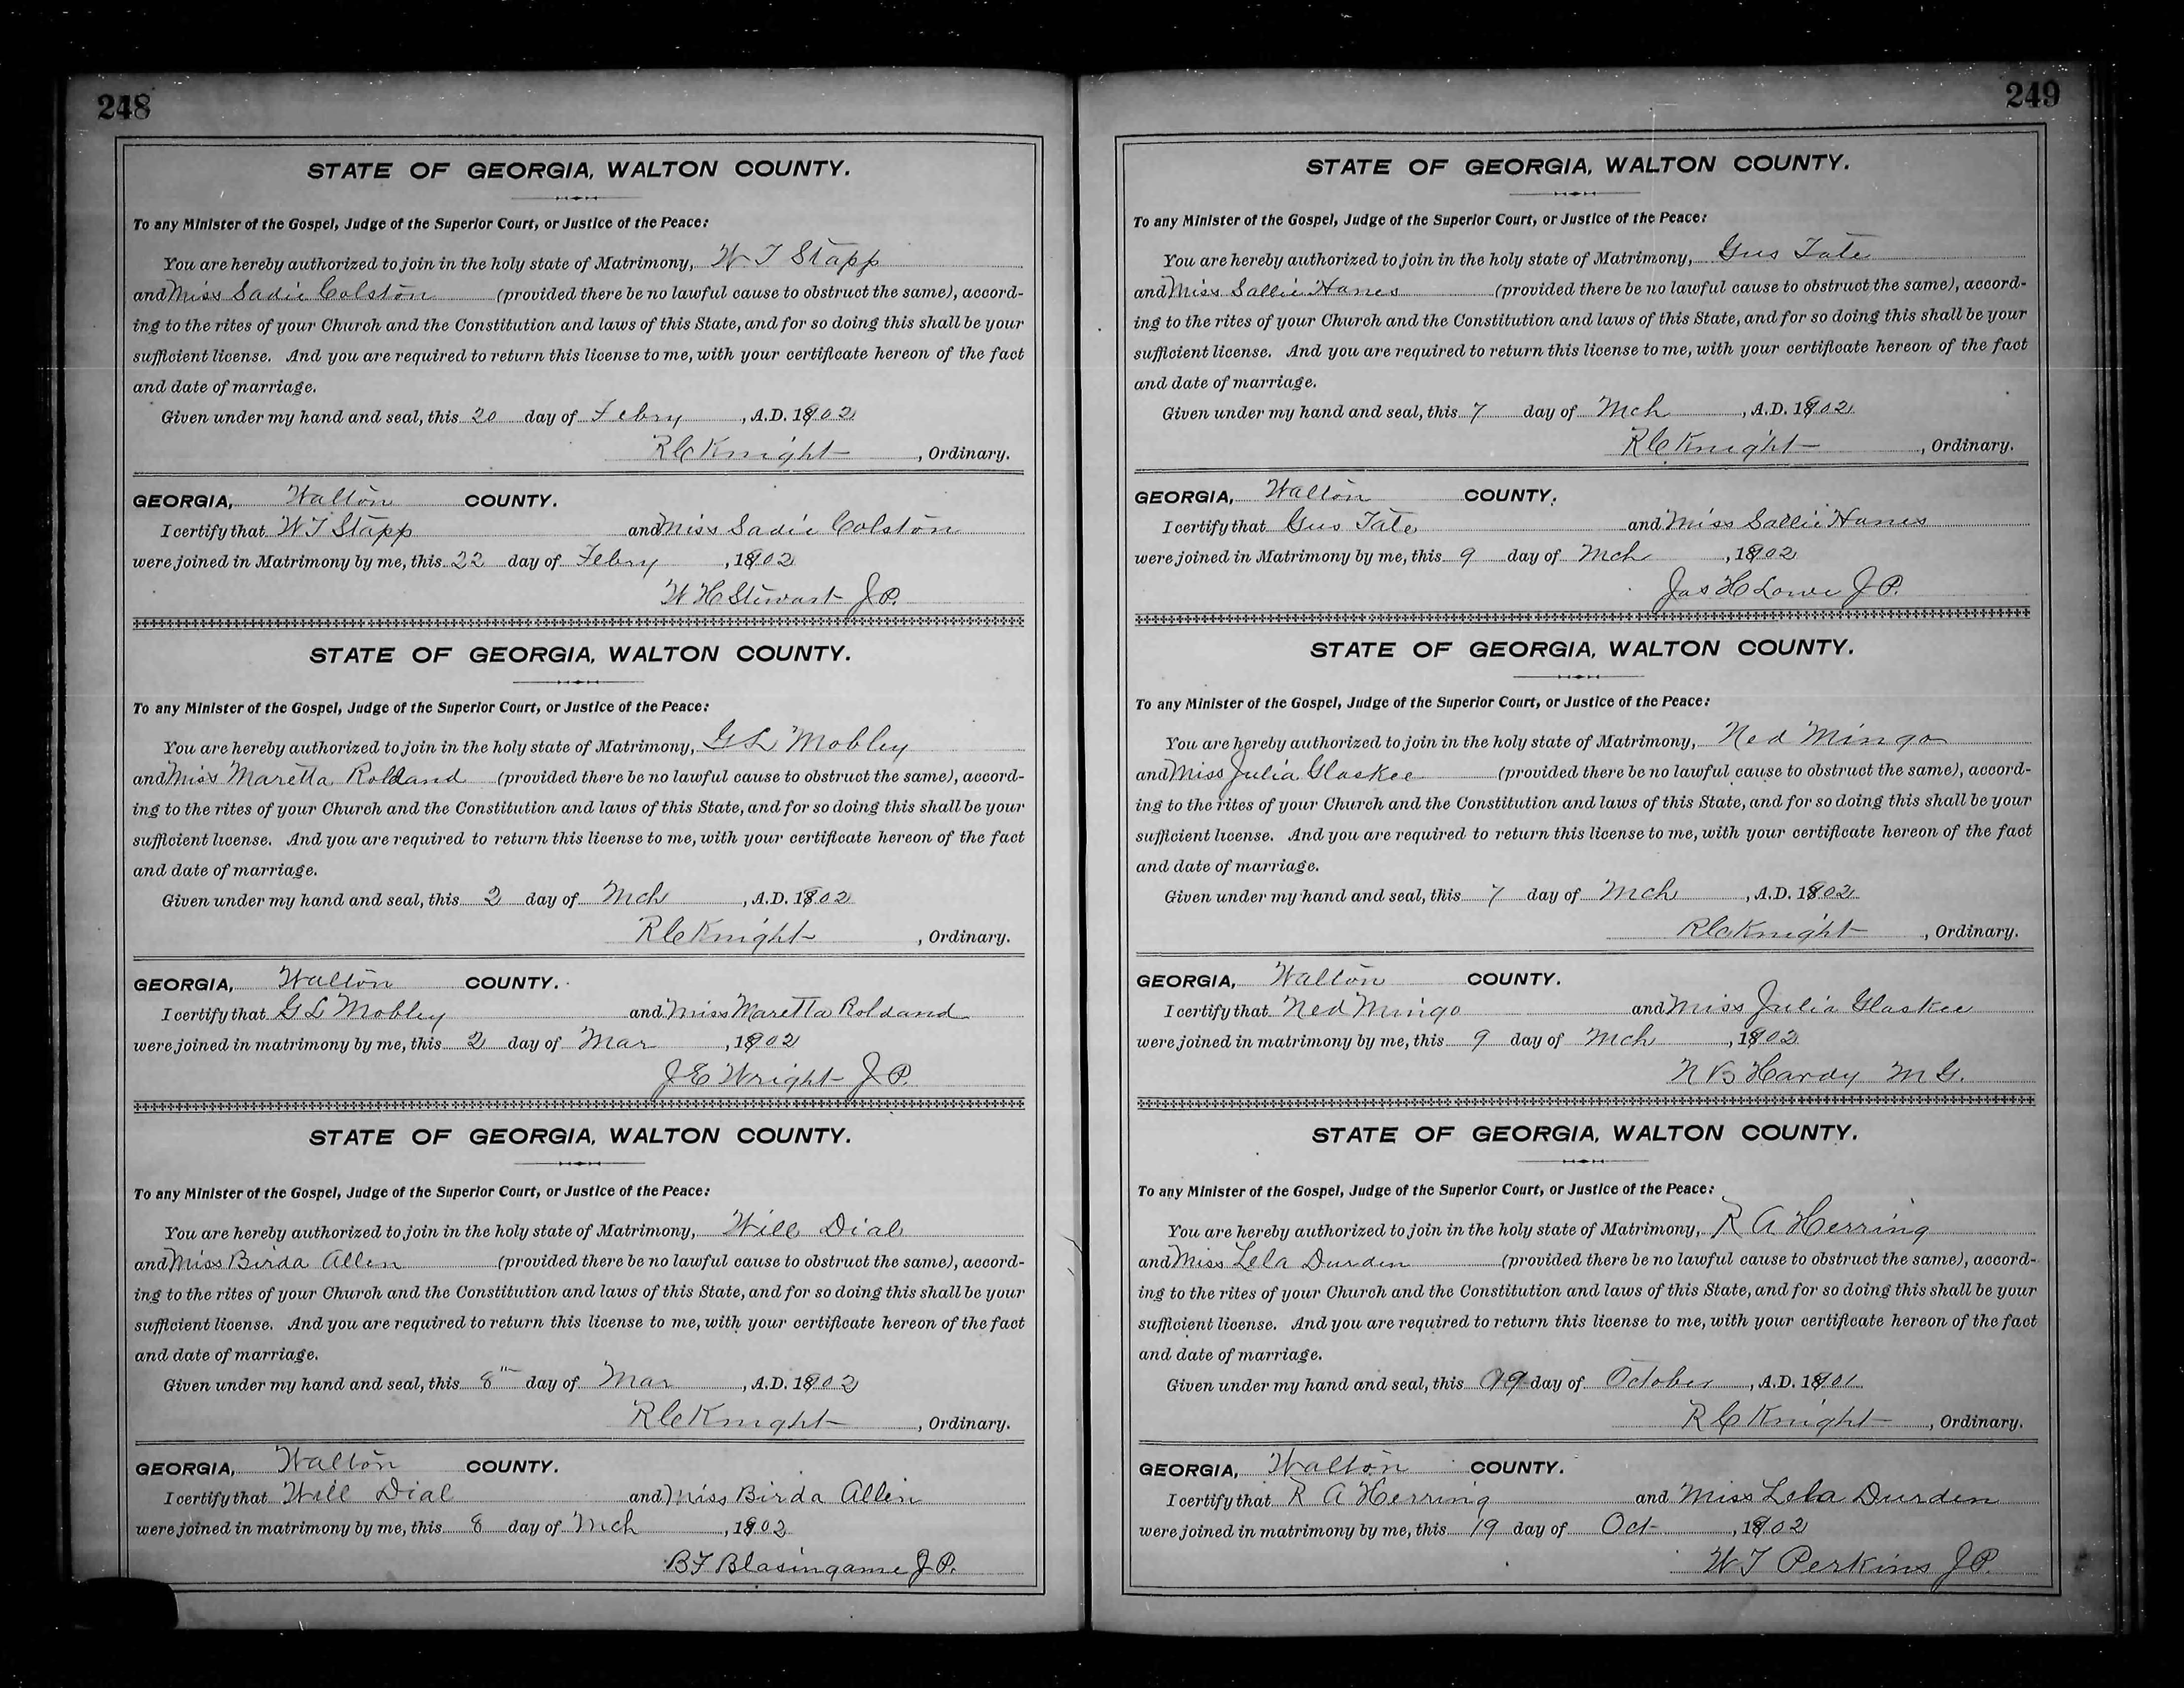 248
STATE OF GEORGIA, WALTON COUNTY.
To any Minister of the Gospel, Judge of the Superior Court, or Justice of the Peace:
You are hereby authorized to join in the holy state of Matrimony, W T Stapp
and Miss Sadie Colston (provided there be no lawful cause to obstruct the same), accord-
ing to the rites of your Church and the Constitution and laws of this State, and for so doing this shall be your
sufficient license. And you are required to return this license to me, with your certificate hereon of the fact
and date of marriage.
Given under my hand and seal, this 20 day of Febry, A.D. 1902
R C Knight, Ordinary.
GEORGIA, Walton COUNTY.
I certify that W T Stapp and Miss Sadie Colston
were joined in Matrimony by me, this 22 day of Febry, 1902
W H Stewart J.P.
STATE OF GEORGIA, WALTON COUNTY.
To any Minister of the Gospel, Judge of the Superior Court, or Justice of the Peace:
You are hereby authorized to join in the holy state of Matrimony, G L Mobley
and Miss Maretta Roland (provided there be no lawful cause to obstruct the same), accord-
ing to the rites of your Church and the Constitution and laws of this State, and for so doing this shall be your
sufficient license. And you are required to return this license to me, with your certificate hereon of the fact
and date of marriage.
Given under my hand and seal, this 2 day of Mch, A.D. 1902
R C Knight, Ordinary.
GEORGIA, Walton COUNTY.
I certify that G L Mobley and Miss Maretta Roland
were joined in matrimony by me, this 2 day of Mar, 1902
J E Wright J.P.
STATE OF GEORGIA, WALTON COUNTY.
To any Minister of the Gospel, Judge of the Superior Court, or Justice of the Peace:
You are hereby authorized to join in the holy state of Matrimony, Will Dial
and Miss Birda Allen (provided there be no lawful cause to obstruct the same), accord-
ing to the rites of your Church and the Constitution and laws of this State, and for so doing this shall be your
sufficient license. And you are required to return this license to me, with your certificate hereon of the fact
and date of marriage.
Given under my hand and seal, this 8th day of Mar, A.D. 1902
R C Knight, Ordinary.
GEORGIA, Walton COUNTY.
I certify that Will Dial and Miss Birda Allen
were joined in matrimony by me, this 8 day of Mch, 1902
B F Blasingame J.P.
249
STATE OF GEORGIA, WALTON COUNTY.
To any Minister of the Gospel, Judge of the Superior Court, or Justice of the Peace:
You are hereby authorized to join in the holy state of Matrimony, Gus Tate
and Miss Sallie Hanes (provided there be no lawful cause to obstruct the same), accord-
ing to the rites of your Church and the Constitution and laws of this State, and for so doing this shall be your
sufficient license. And you are required to return this license to me, with your certificate hereon of the fact
and date of marriage.
Given under my hand and seal, this 7 day of Mch, A.D. 1902
R C Knight, Ordinary.
GEORGIA, Walton COUNTY.
I certify that Gus Tate and Miss Sallie Hanes
were joined in Matrimony by me, this 9 day of Mch, 1902
Jas H Lowe J.P.
STATE OF GEORGIA, WALTON COUNTY.
To any Minister of the Gospel, Judge of the Superior Court, or Justice of the Peace:
You are hereby authorized to join in the holy state of Matrimony, Ned Mingo
and Miss Julia Glaskee (provided there be no lawful cause to obstruct the same), accord-
ing to the rites of your Church and the Constitution and laws of this State, and for so doing this shall be your
sufficient license. And you are required to return this license to me, with your certificate hereon of the fact
and date of marriage.
Given under my hand and seal, this 7 day of Mch, A.D. 1902
R C Knight, Ordinary.
GEORGIA, Walton COUNTY.
I certify that Ned Mingo and Miss Julia Glaskee
were joined in matrimony by me, this 9 day of Mch, 1902
N B Hardy M G.
STATE OF GEORGIA, WALTON COUNTY.
To any Minister of the Gospel, Judge of the Superior Court, or Justice of the Peace:
You are hereby authorized to join in the holy state of Matrimony, R A Herring
and Miss Lela Durden (provided there be no lawful cause to obstruct the same), accord-
ing to the rites of your Church and the Constitution and laws of this State, and for so doing this shall be your
sufficient license. And you are required to return this license to me, with your certificate hereon of the fact
and date of marriage.
Given under my hand and seal, this 19 day of October, A.D. 1901
R C Knight, Ordinary.
GEORGIA, Walton COUNTY.
I certify that R A Herring and Miss Lela Durden
were joined in matrimony by me, this 19 day of Oct, 1902
W T Perkins J.P.